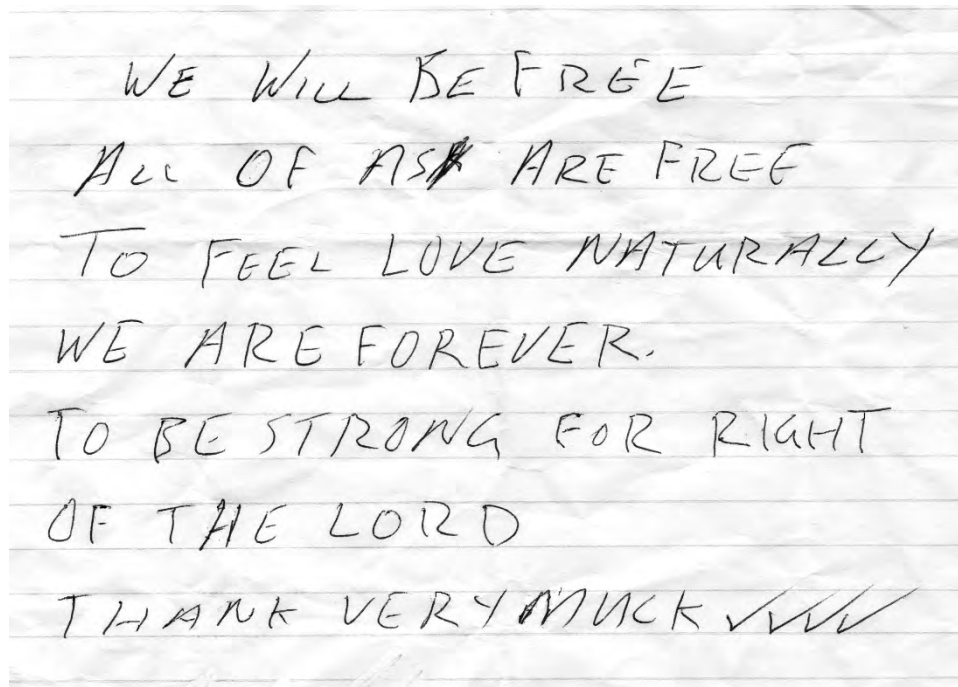 WE WILL BE FREE
ALL OF AS ARE FREE
TO FEEL LOVE NATURALLY
WE ARE FOREVER.
TO BE STRONG FOR RIGHT
OF THE LORD
THANK VERY MUCK ✓✓✓✓